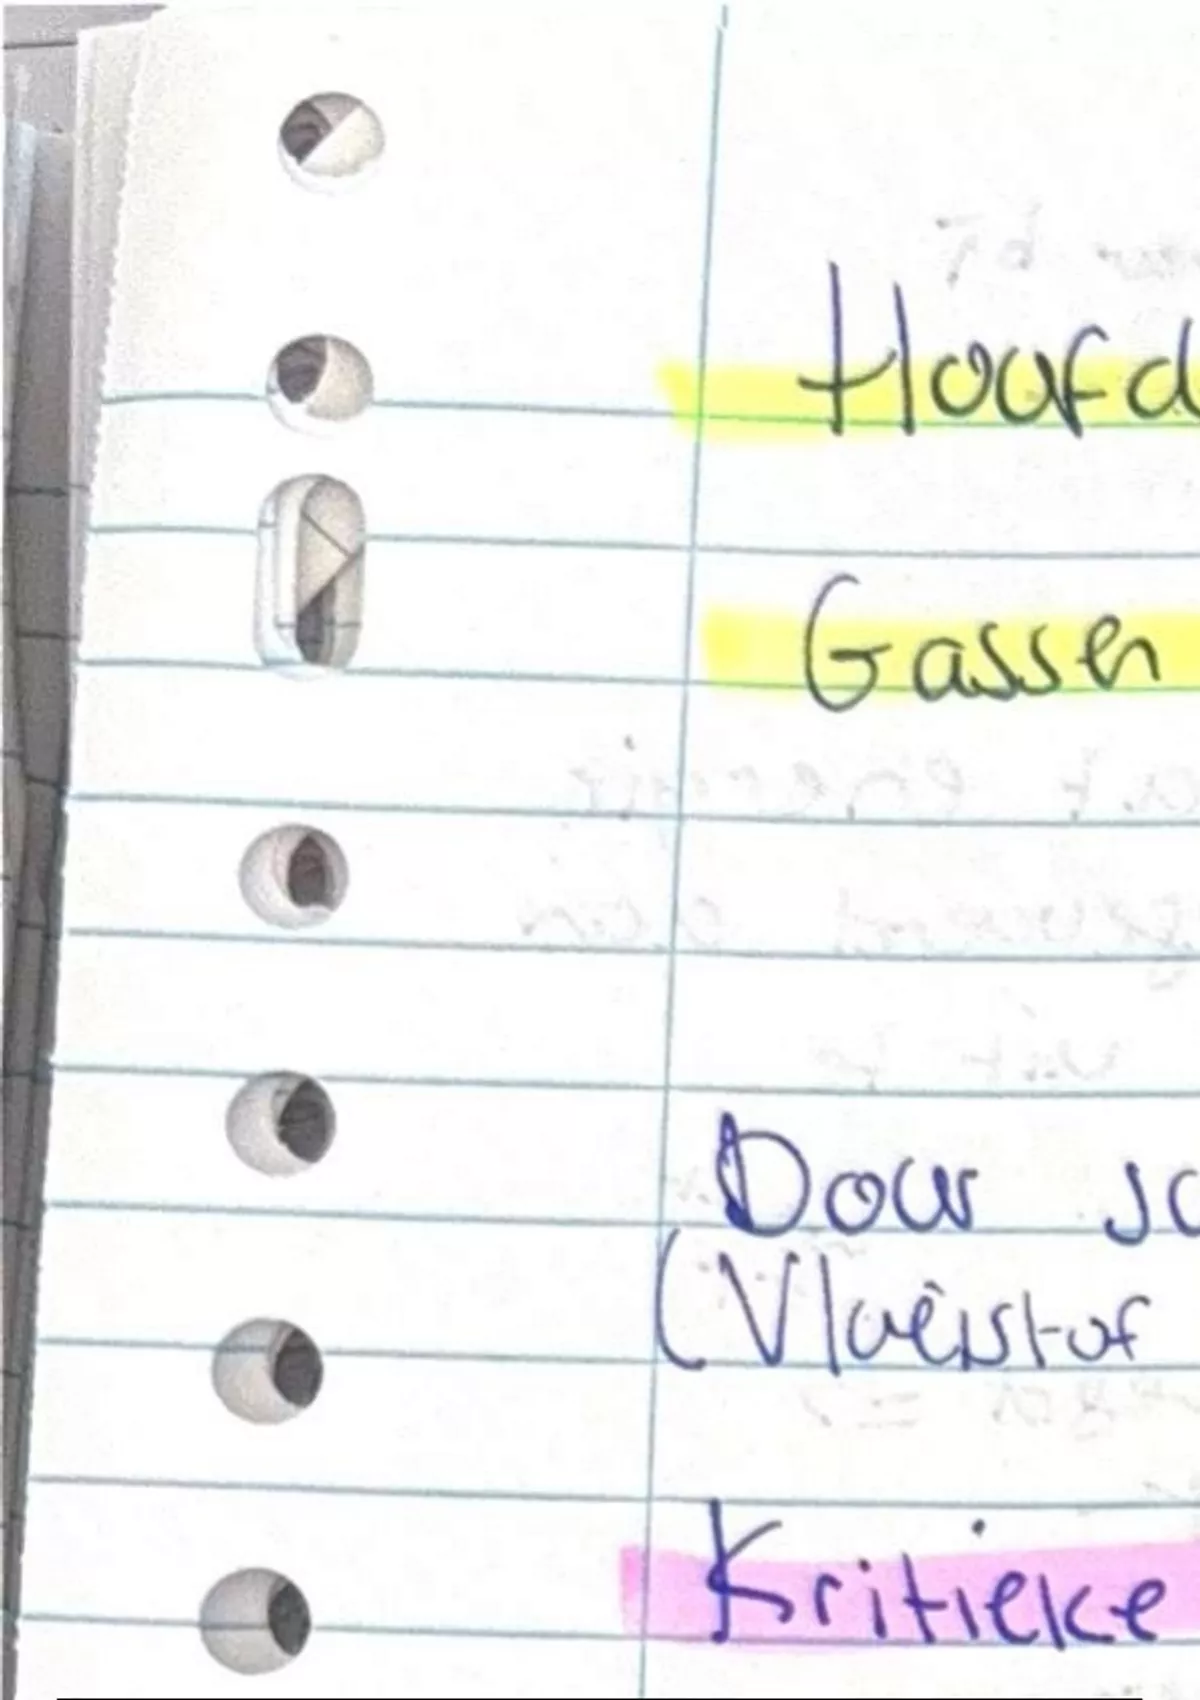 Hoofd
Gassen
Door sc
(Vloeistof
Kritieke